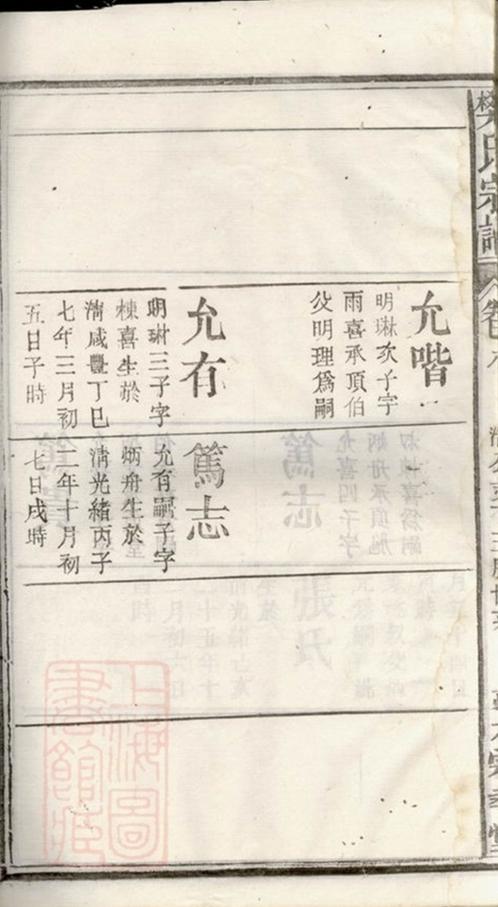 樊氏宗譜
卷
允喈
明琳次子字
雨喜承頂伯
父明理為嗣
允有
明琳三子字
棟喜生於
清咸豐丁巳
七年三月初
五日子時
篤志
允有嗣子字
炳舟生於
清光緒丙子
二年十月初
七日戌時
上海圖
書館藏